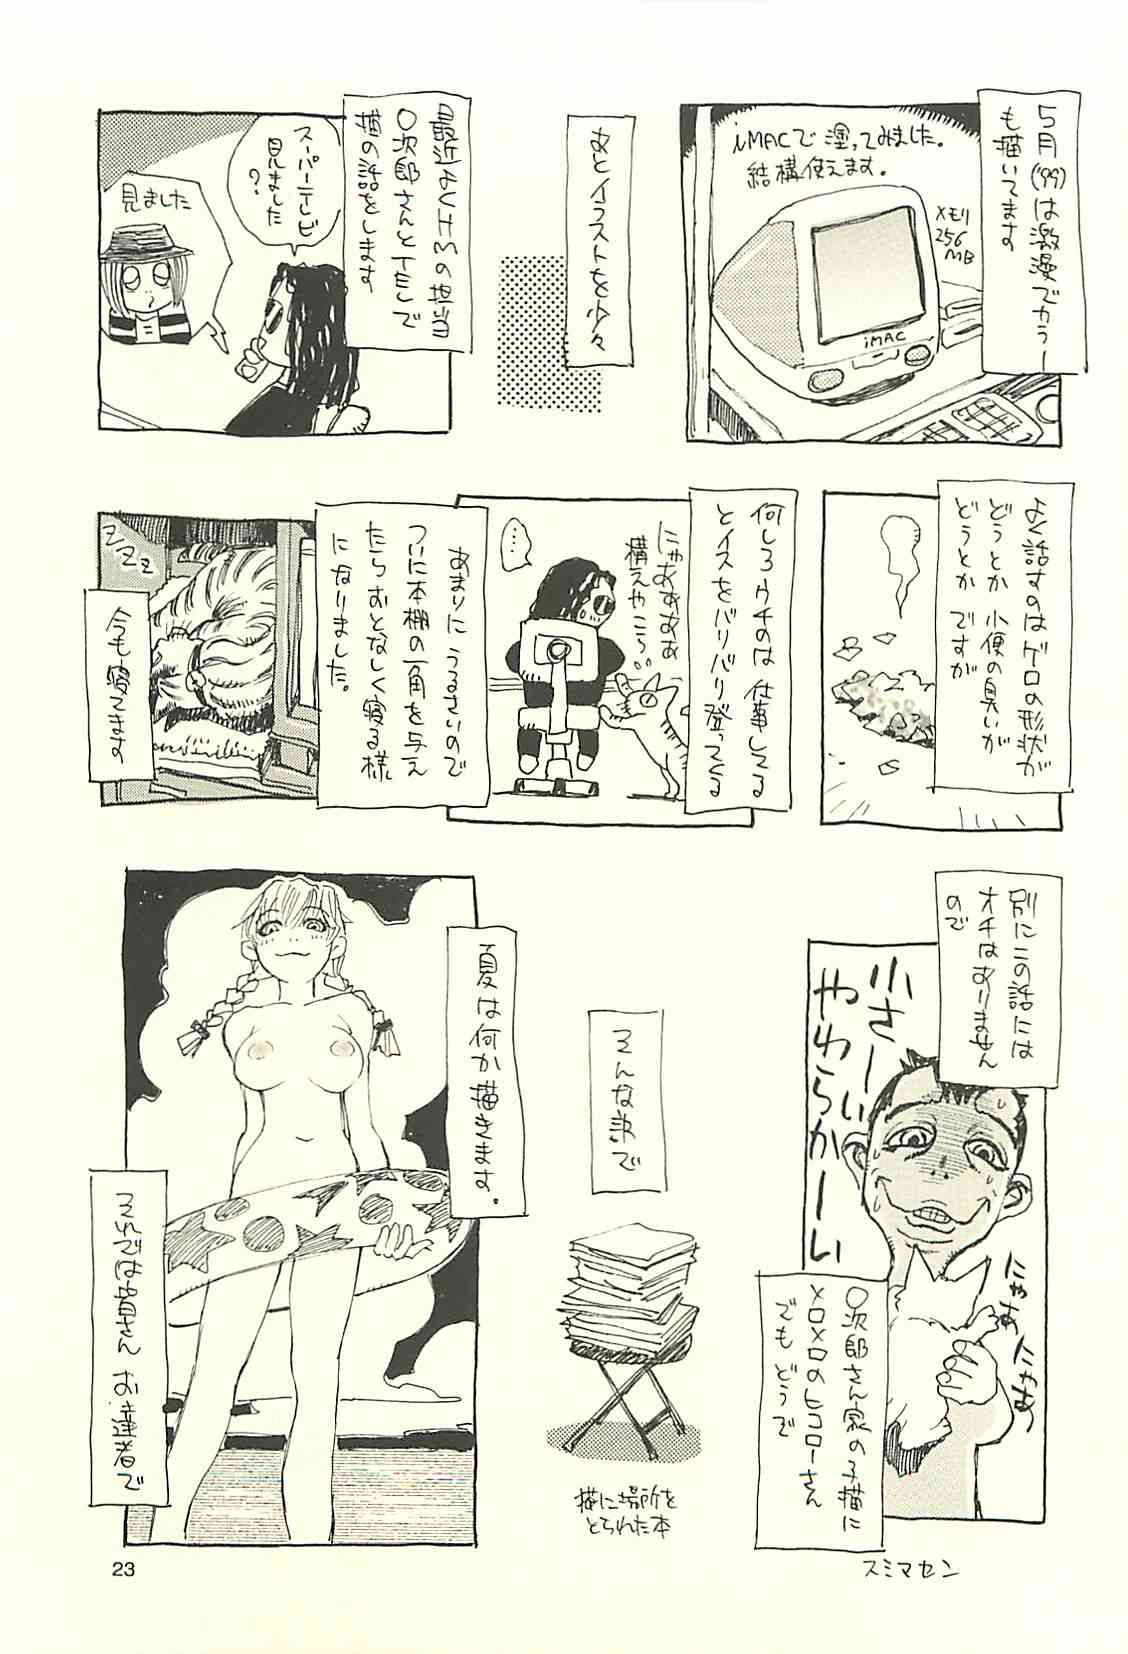 5月('99)は激漫でカラー
も描いてます
iMACで塗ってみました。
結構使えます。
メモリ
256
MB
iMAC
あとイラストを少々
最近よくHMの担当
〇次郎さんとTELで
猫の話をします
スーパーテレビ
見ました
?
見ました
よく話すのはゲロの形状が
どうとか 小便の臭いが
どうとか ですが
何しろウチのは 仕事してる
とイスをバリバリ登ってくる
にゃああああ
構えやこら
……
あまりに うるさいので
ついに本棚の一角を与え
たら おとなしく寝る様
になりました。
ZZZZ
今も寝てます
別にこの話には
オチはありません
ので
小さーい
やわらかーい
にゃあ にゃあ
〇次郎さん家の子猫に
メロメロのヒコローさん
でも どうぞ
スミマセン
そんな訳で
猫に場所を
とられた本
夏は何か描きます。
それでは皆さん お達者で
23